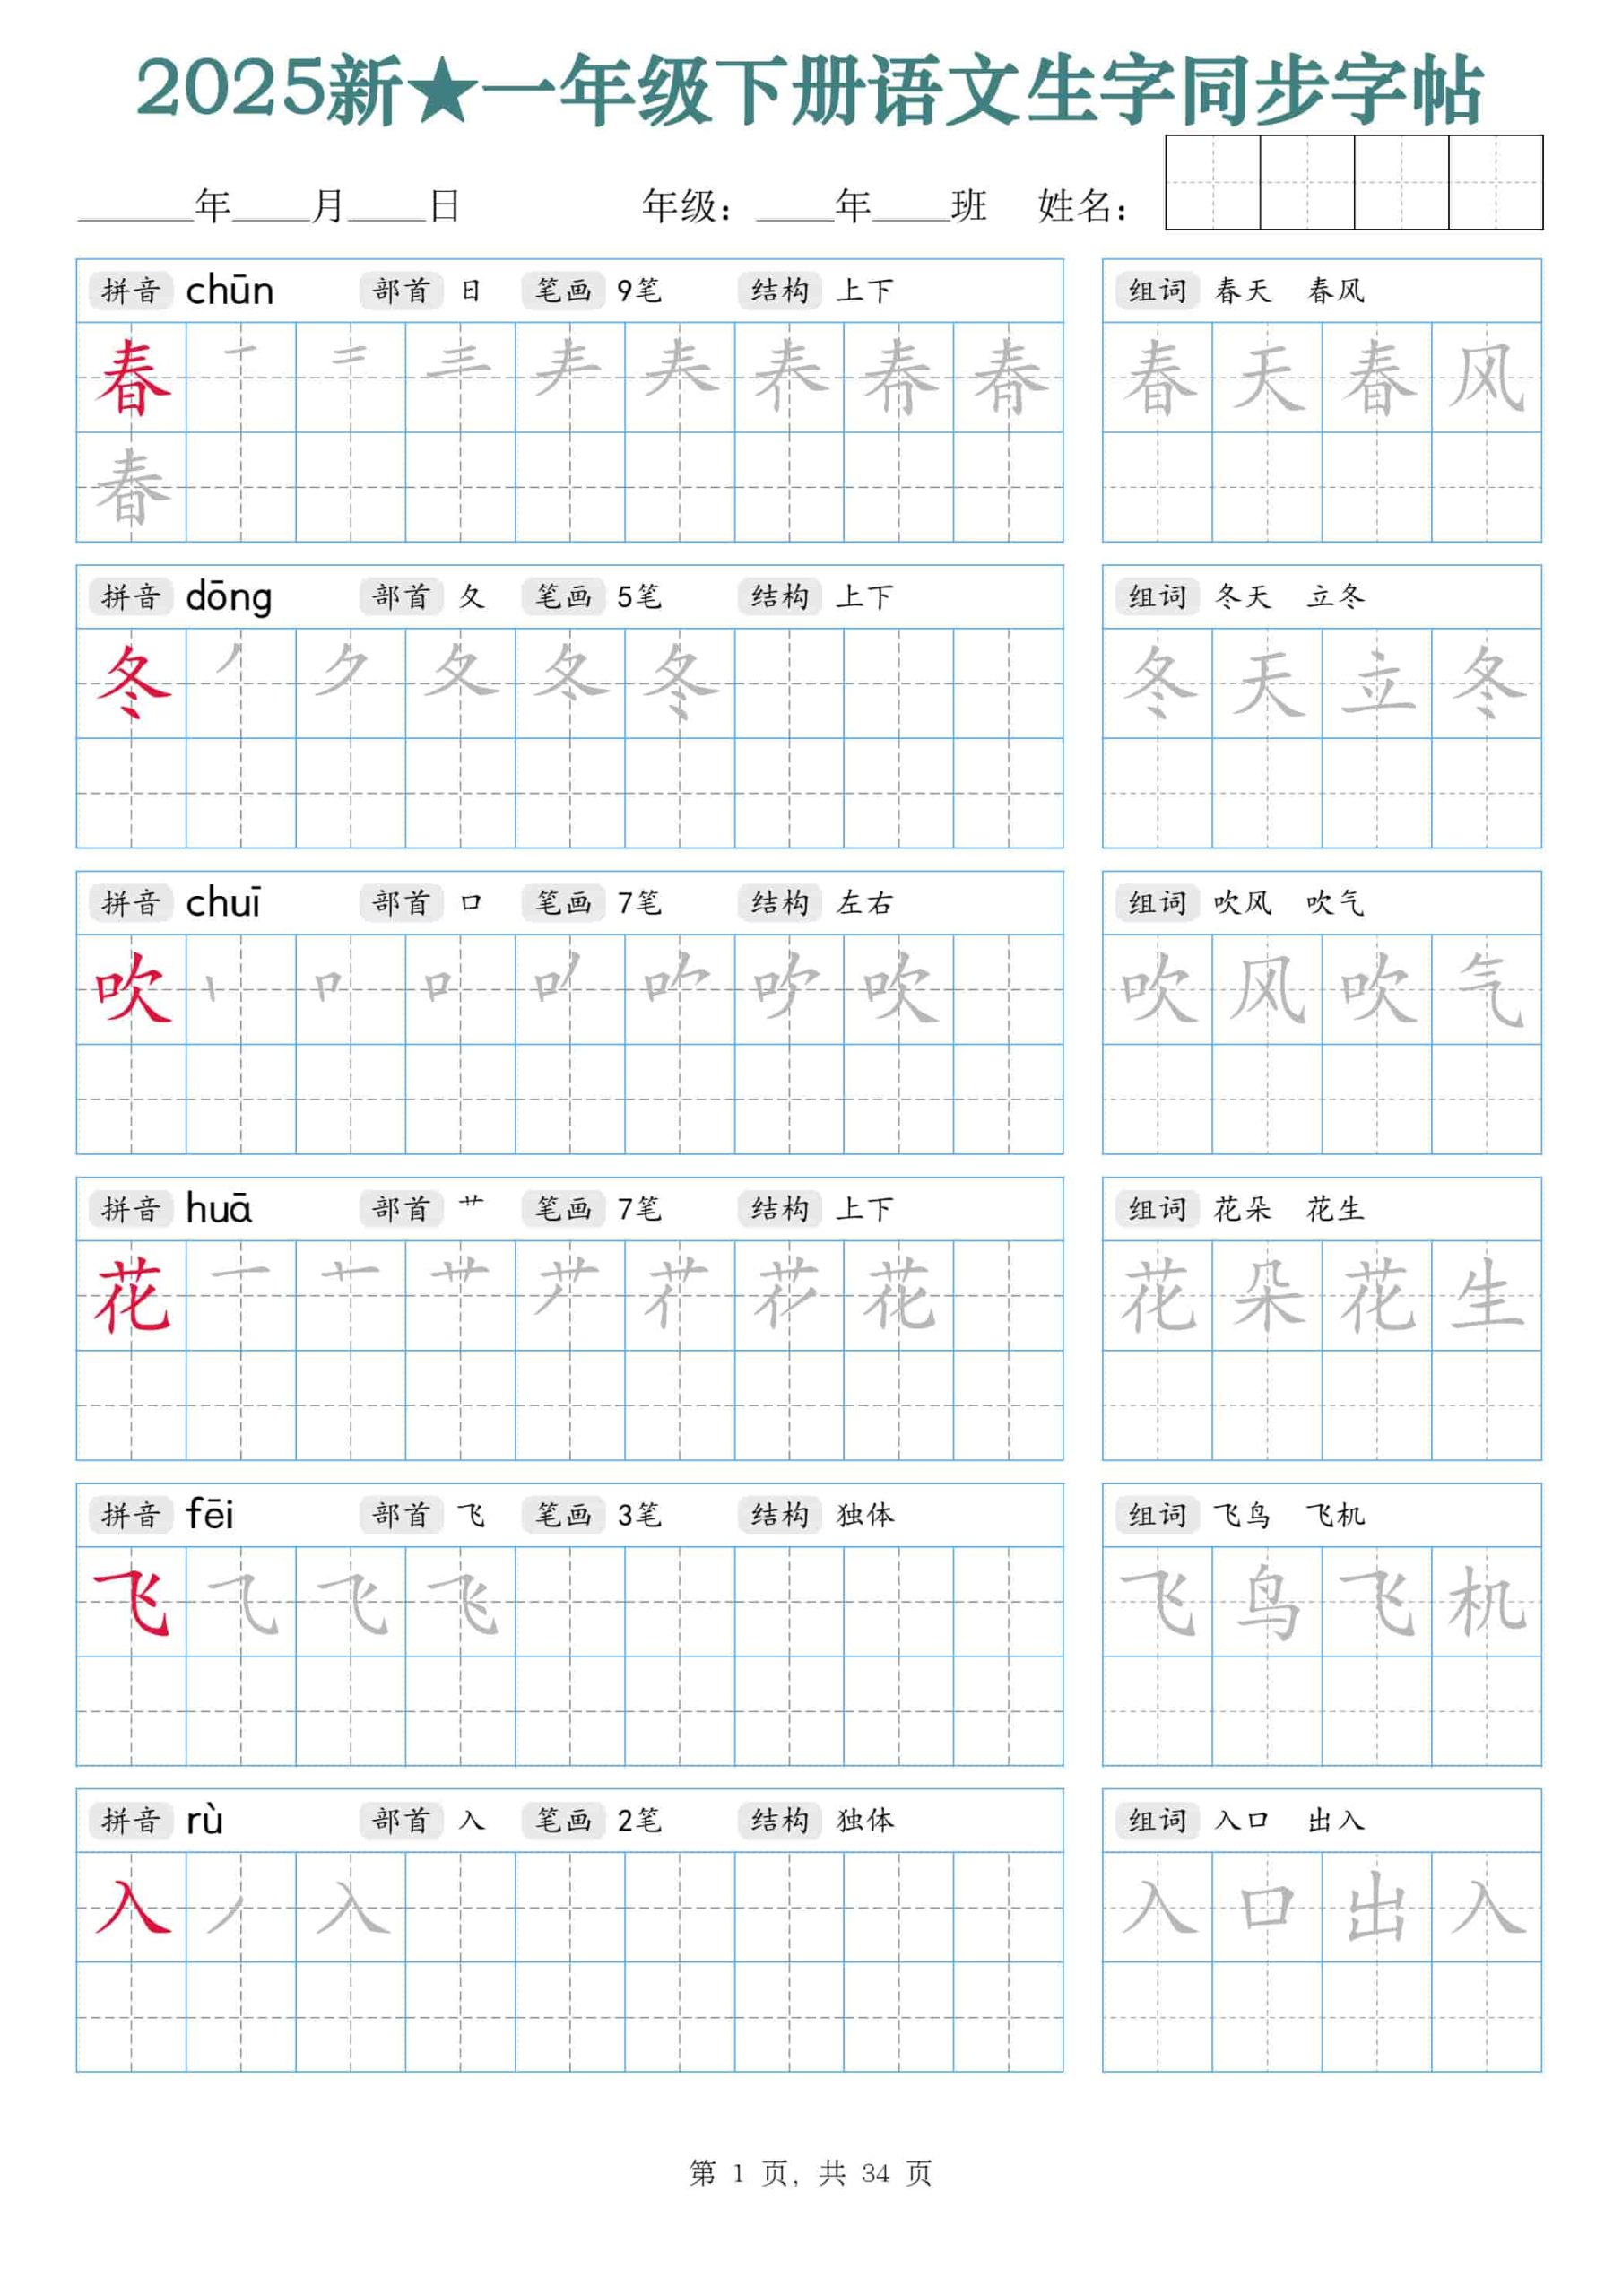 2025新★一年级下册语文生字同步字帖
______年____月____日 年级：____年____班 姓名：
拼音 chūn 部首 日 笔画 9笔 结构 上下 组词 春天 春风
春 春 天 春 风
春
拼音 dōng 部首 夂 笔画 5笔 结构 上下 组词 冬天 立冬
冬 丿 ク 夂 冬 冬 天 立 冬
拼音 chuī 部首 口 笔画 7笔 结构 左右 组词 吹风 吹气
吹 丨 口 吹 吹 风 吹 气
拼音 huā 部首 艹 笔画 7笔 结构 上下 组词 花朵 花生
花 一 艹 花 花 朵 花 生
拼音 fēi 部首 飞 笔画 3笔 结构 独体 组词 飞鸟 飞机
飞 ⺄ 飞 飞 鸟 飞 机
拼音 rù 部首 入 笔画 2笔 结构 独体 组词 入口 出入
入 丿 入 入 口 出 入
第 1 页，共 34 页